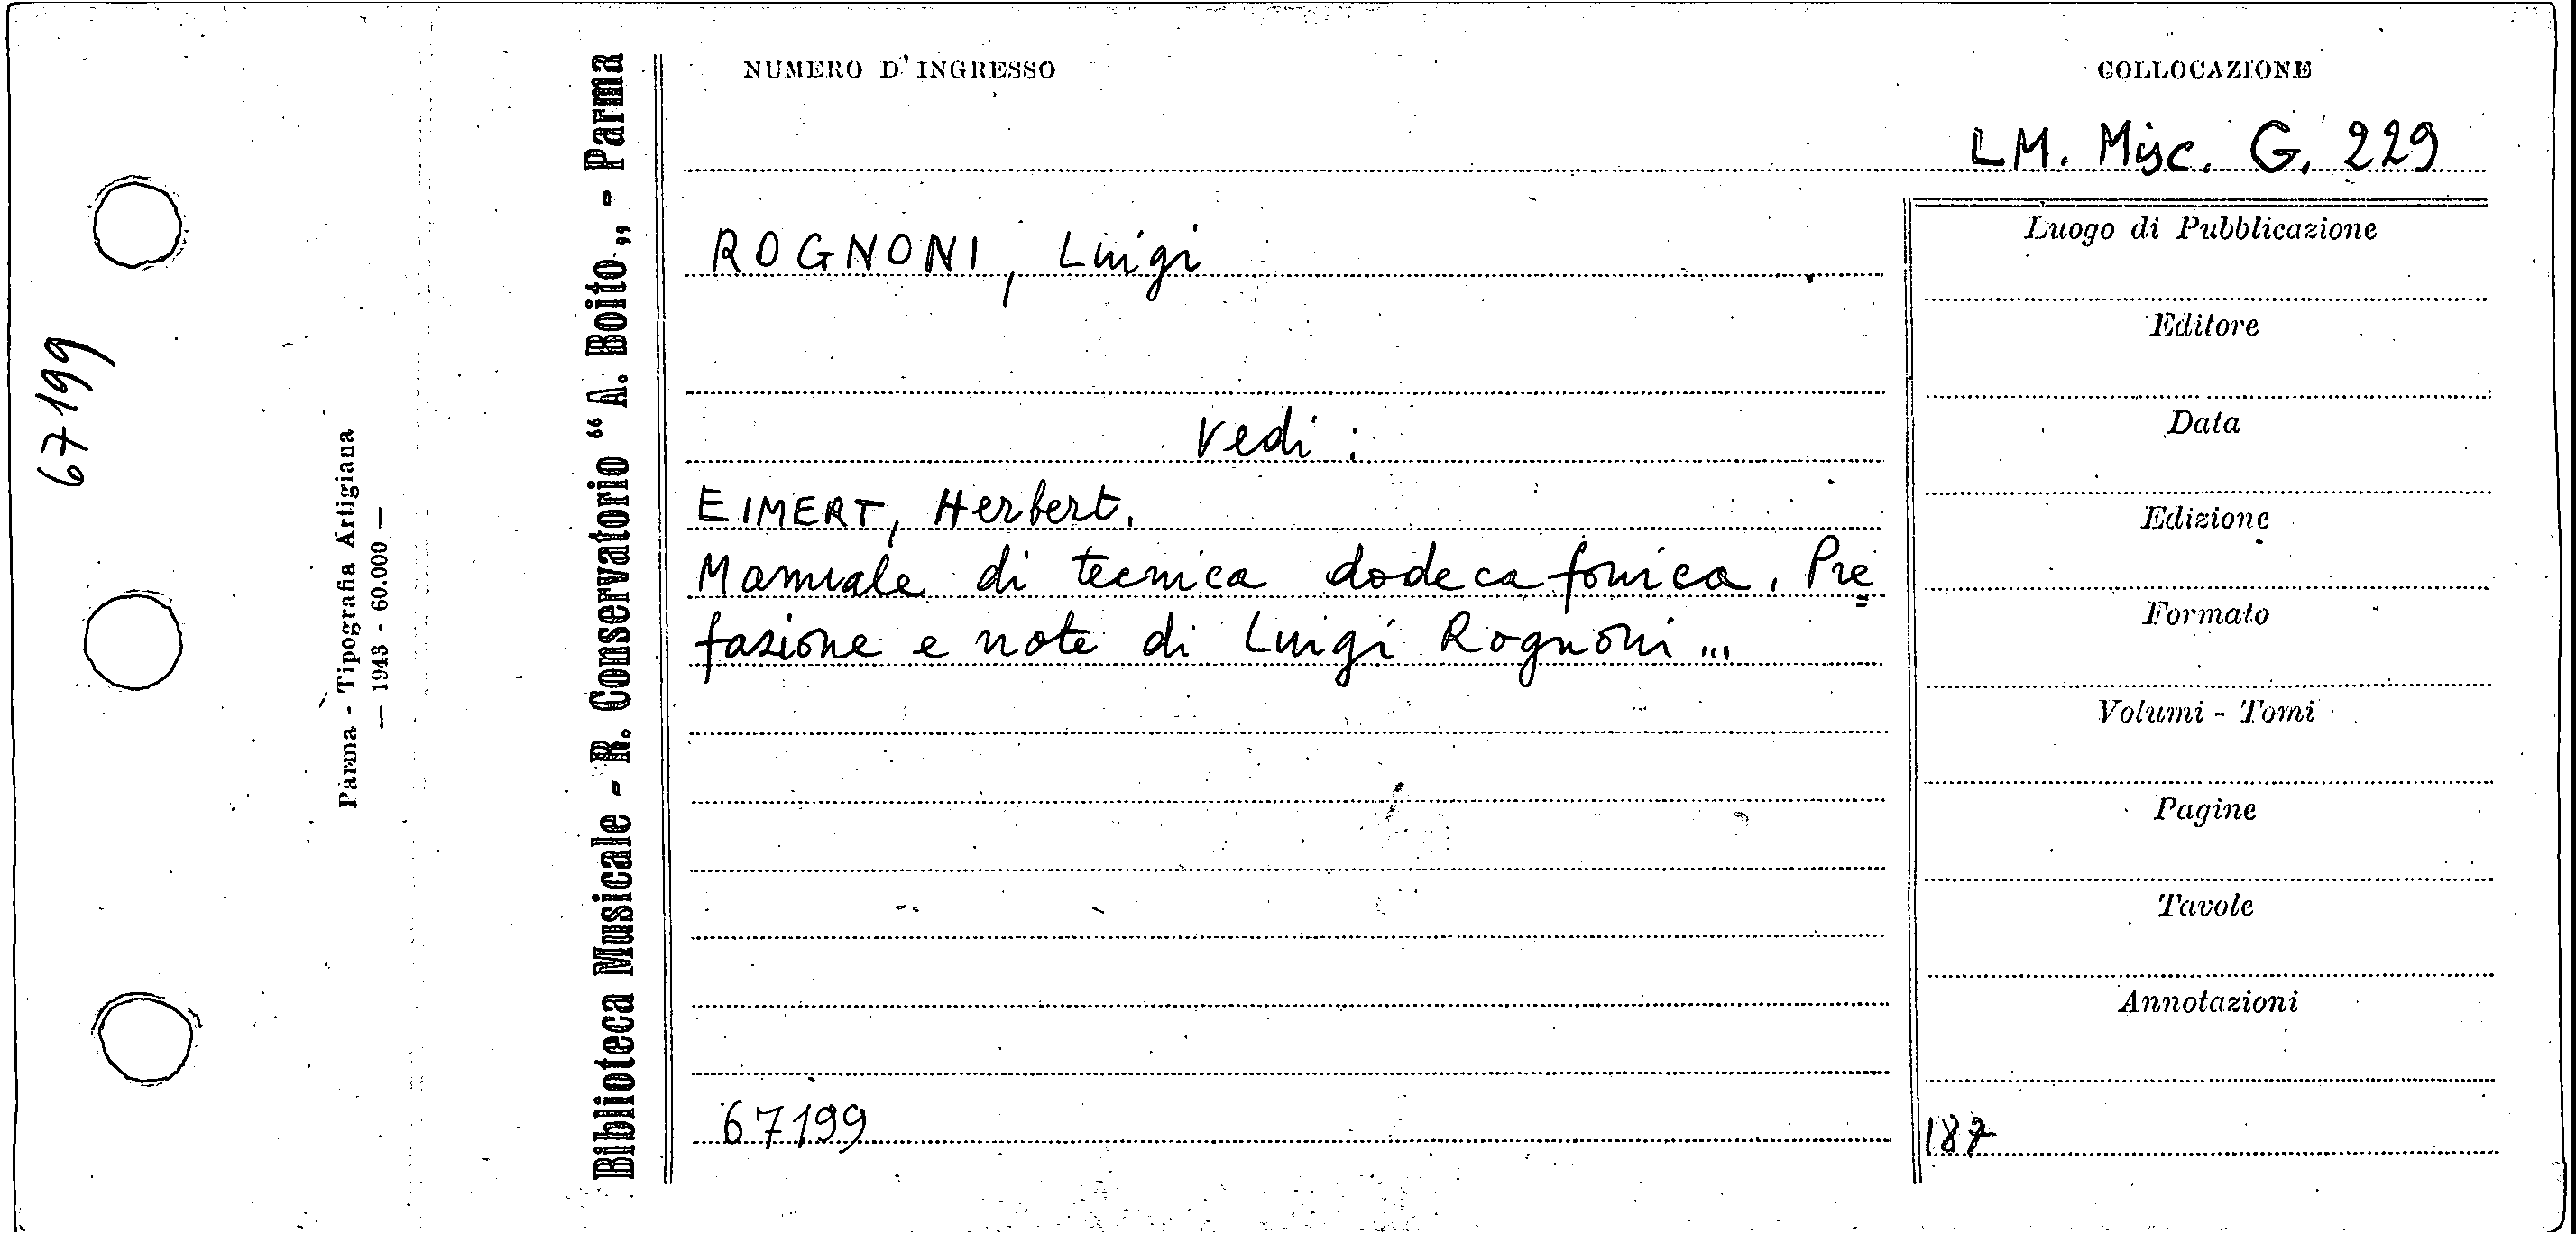 67199
Parma - Tipografia Artigiana
— 1943 - 60.000 —
Biblioteca Musicale - R. Conservatorio “A. Boito„ - Parma
NUMERO D'INGRESSO
COLLOCAZIONE
LM. Misc. G. 229
ROGNONI, Luigi
Vedi :
EIMERT, Herbert.
Manuale di tecnica dodecafonica. Pre
fazione e note di Luigi Rognoni ...
67199
Luogo di Pubblicazione
Editore
Data
Edizione
Formato
Volumi - Tomi
Pagine
Tavole
Annotazioni